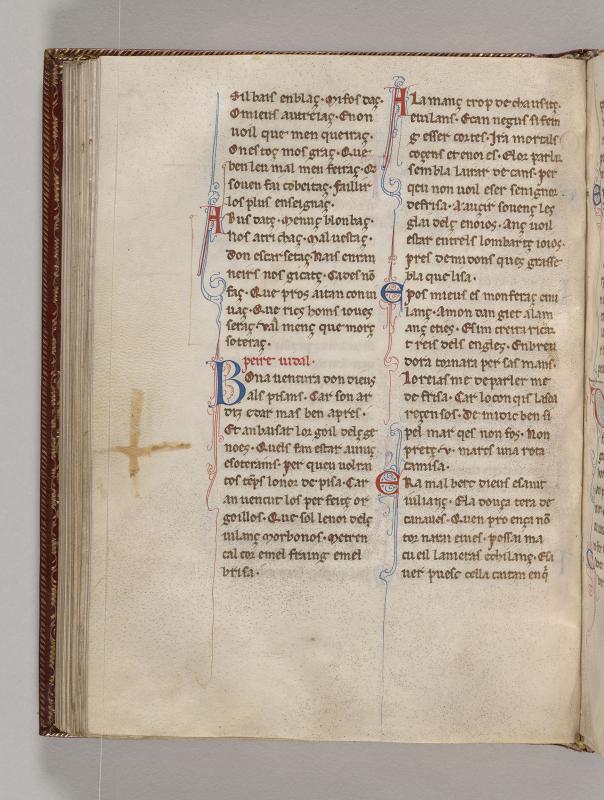 Sil bais enblaç. Mi fos daç.
O mieus autreiaç. En on
uoil que men queiraç.
On es toç mos graç. Que
ben leu mal men feiraç. Qe
souen fai cobeitaç. Faillir
los plus enseignaç.
A Bus datç. Menuç blon baç.
Nos atrichaç. Mal uestaç.
Don escar setaç. Nais enran
neirs nos gicatç. Ca des nõ
faç. Que pros aitan con uiu
uaç. Que ricç homs ioues
seraç. Val menç que morç
soteraç.
peire uidal.
B Ona uentura don dieus
als pisans. Car son ar
ditz e dar mas ben apres.
Et an baisat lor goil dels ge
noes. Quels fan estar aunitç
e soterans. Per qeu uolrai
tos têps lonor de pisa. Car
an uencut los per feitç or
goillos. Que sol lenoi dels
uilanç morbonos. Me tren
cal cor emel fraing emel
brisa.
A Lamanç trop de chausitç.
e uilans. E can negus si fein
g esser cortes. Ira mortals
cozens et enoi es. E lor parlar
sembla lairar de cans. Per
qeu non uoil eser seingnor
de frisa. Auzir souenç les
glai dels enoios. Anç uoil
estar entrels lombartç ioios.
pres de mi dons ques graisse
bla que lisa.
E pos mieus es monferaç e mi
lanç. A mon dan giet alam
anç e ties. E sim creira ricar
t reis dels engles. En breu
dora tornara per sas mans.
Lo reiasme de parlerme
de frisa. Car lo con qis lasoa
regen sos. De midic ben si
pel mar qes non fos. Non
pretç .v. marcs una rota
camisa.
E Ra mal berc dieus e saint
iulianç. E la douça tera de
canaues. Quen pro ença nõ
tor narai emes. Pos sai ma
cueil laneiras e chilanç. E sa
uer puesc cella caitan enq̃